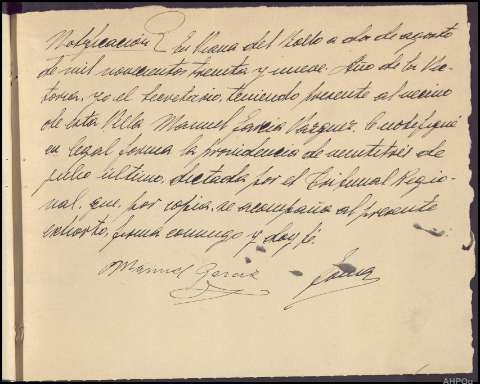 Notificación} En Viana del Bollo a dos de agosto
de mil novecientos treinta y nueve. Año de la Vic-
toria. yo el Secretario, teniendo presente al vecino
de esta Villa Manuel García Vázquez, le notifiqué
en legal forma la providencia de veintitrés de
julio último, dictada por el Tribunal Regio-
nal, que por copia se acompaña al presente
exhorto, firma conmigo y doy fé.
Manuel Garcia
AHPOu